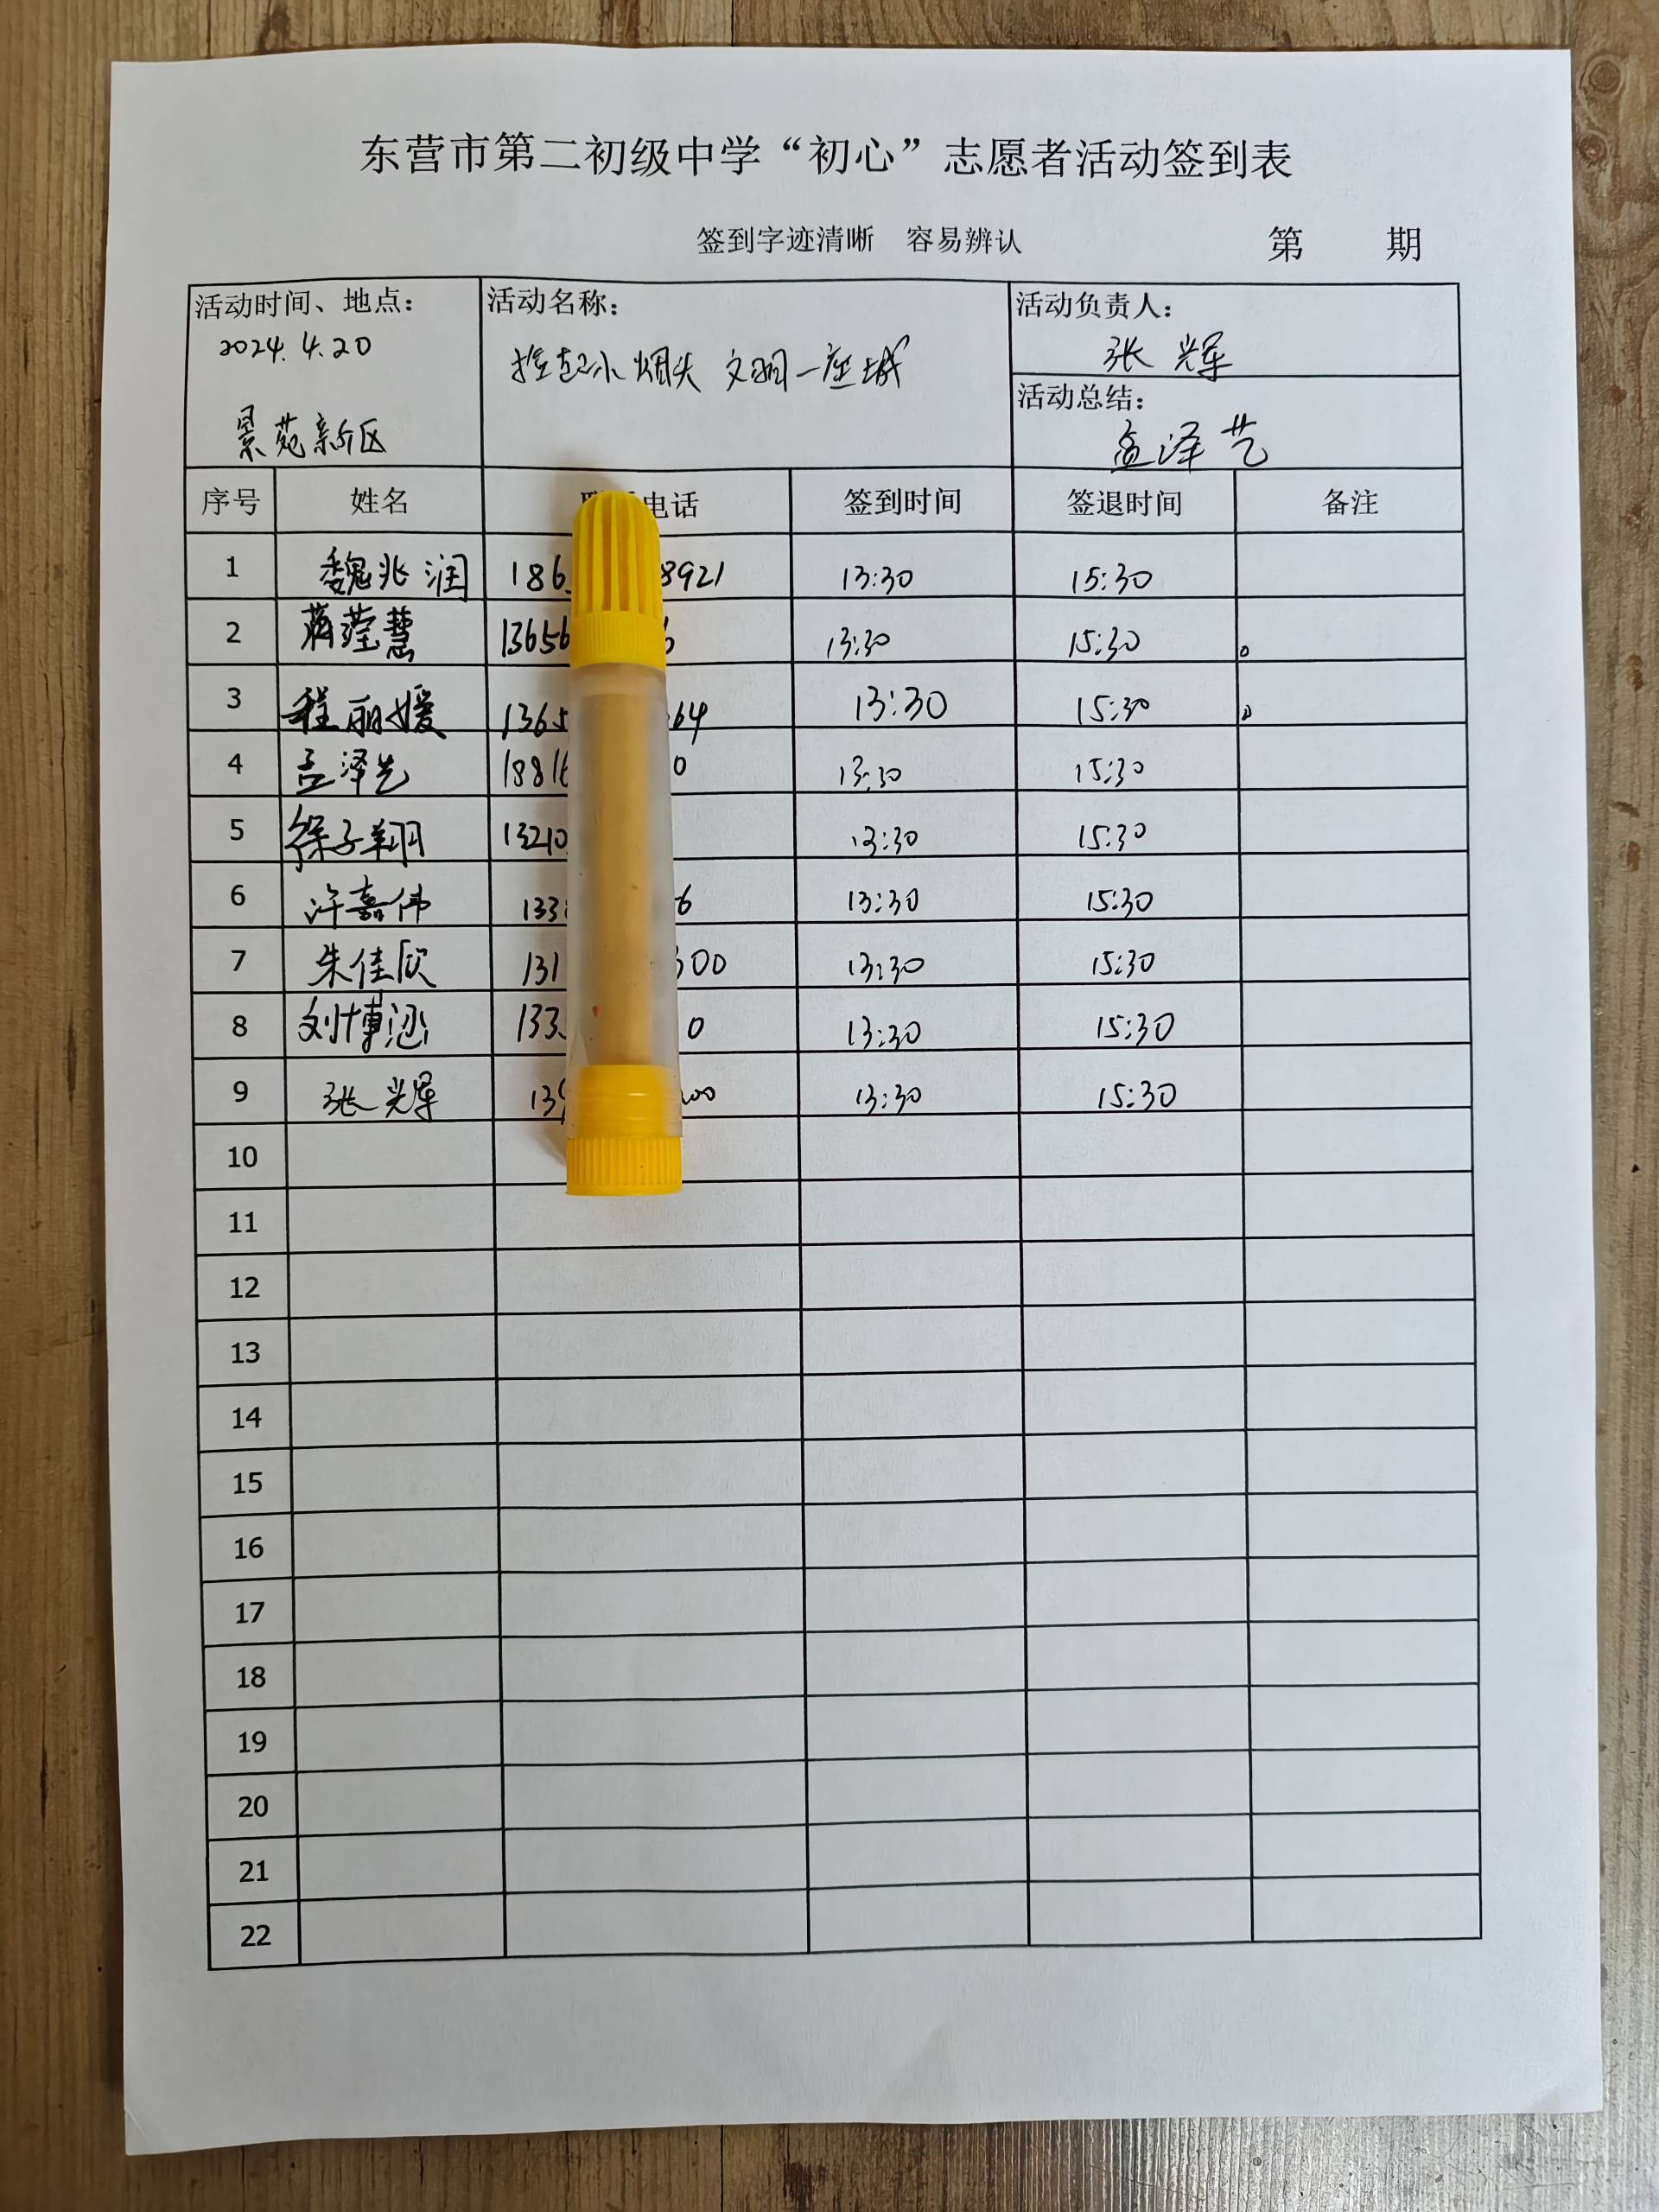 东营市第二初级中学“初心”志愿者活动签到表
签到字迹清晰 容易辨认 第 期
活动时间、地点： 活动名称： 活动负责人：
2024.4.20 捡起小烟头 文明一座城 张辉
活动总结：
景苑新区 孟泽艺
序号 姓名 电话 签到时间 签退时间 备注
1 魏兆润 186 8921 13:30 15:30
2 蒋莹慧 13656 6 13:30 15:30
3 程丽媛 1365 64 13:30 15:30
4 孟泽艺 1881 0 13:30 15:30
5 徐子翔 13210 13:30 15:30
6 许嘉伟 133 6 13:30 15:30
7 朱佳欣 131 300 13:30 15:30
8 刘博涵 133 0 13:30 15:30
9 张辉 139 00 13:30 15:30
10
11
12
13
14
15
16
17
18
19
20
21
22